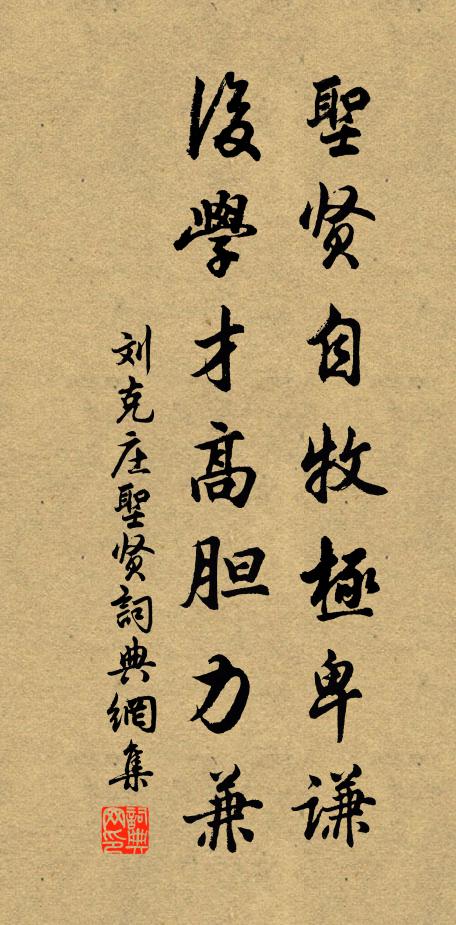 聖贤自牧極卑谦
後學才高胆力兼
刘克庄聖贤詞典網集
詞典网印